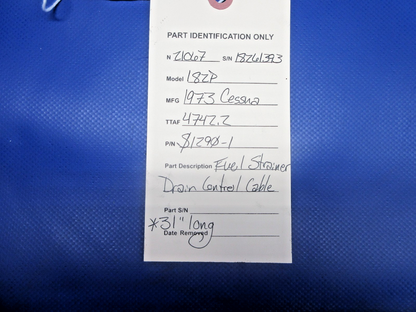 PART IDENTIFICATION ONLY
N 21067 S/N 18261393
Model 182P
MFG 1973 Cessna
TTAF 4742.2
P/N S1290-1
Part Description Fuel Strainer
Drain Control Cable
Part S/N
*31" long
Date Removed